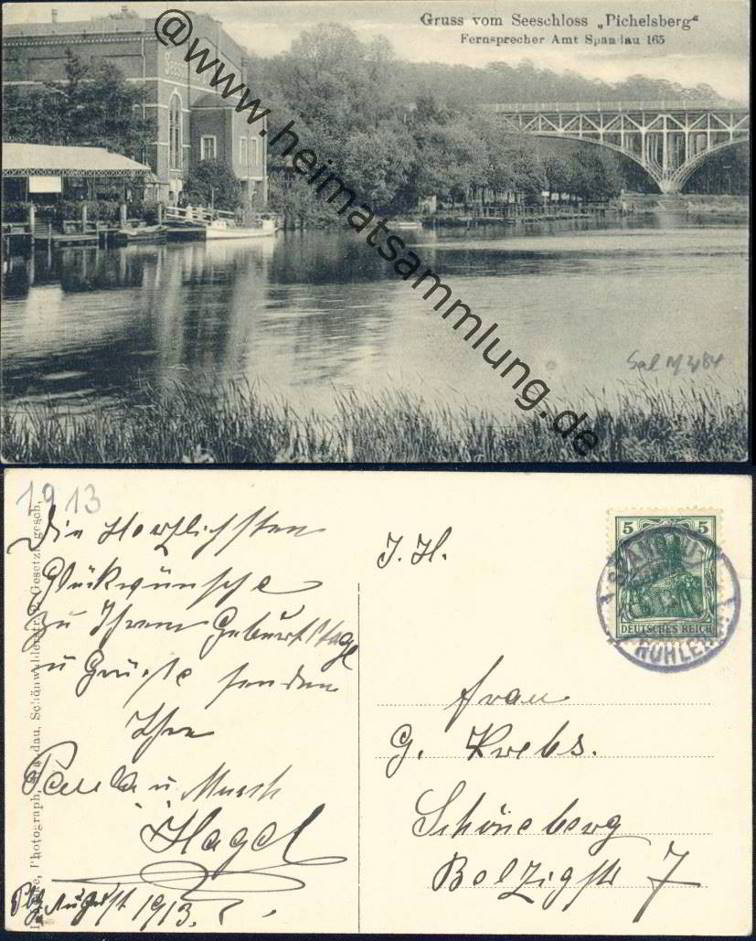 Gruss vom Seeschloss „Pichelsberg“
Fernsprecher Amt Spandau 165
@www.heimatsammlung.de
1913
Die Herzlichsten
Glückwünsche
zu Ihrem Geburtstage
u Grüße senden
Ihre
Paula u.
Hagel
August 1913.
Photograph, Spandau, Schönwalderstr. Gesetzl. gesch.
J. H.
5
DEUTSCHES REICH
SPANDAU
RUHLEB.
Frau
G. Krebs.
Schöneberg
Bolzigstr 7